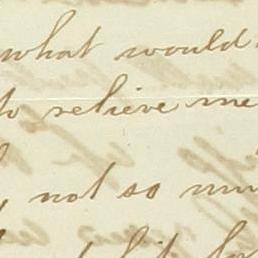 what would
to relieve me
not so mu